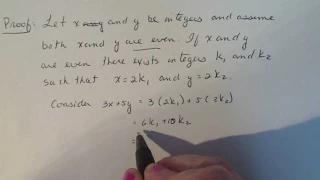 Proof: Let x and y be integers and assume
both x and y are even. If x and y
are even there exists integers k₁ and k₂
such that x = 2k₁ and y = 2k₂.
Consider 3x+5y = 3(2k₁) + 5(2k₂)
= 6k₁ + 10k₂
=